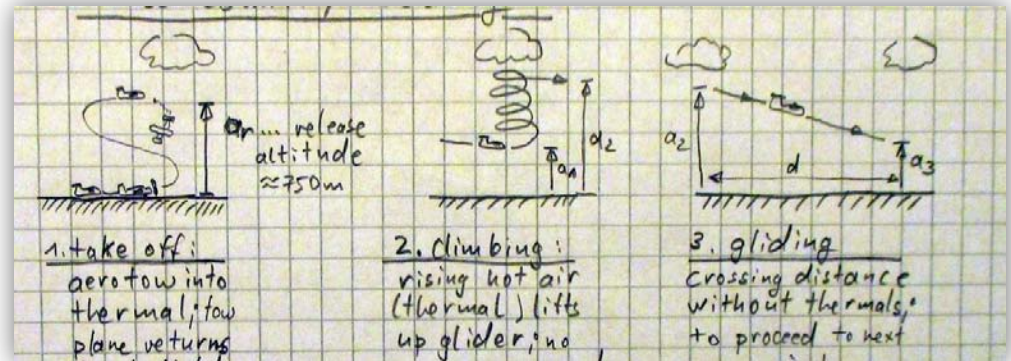 ar... release
altitude
≈750m
a1
a2
a2
d
a3
1. take off:
aerotow into
thermal; tow
plane returns
2. climbing:
rising hot air
(thermal) lifts
up glider; no
3. gliding
crossing distance
without thermals;
to proceed to next